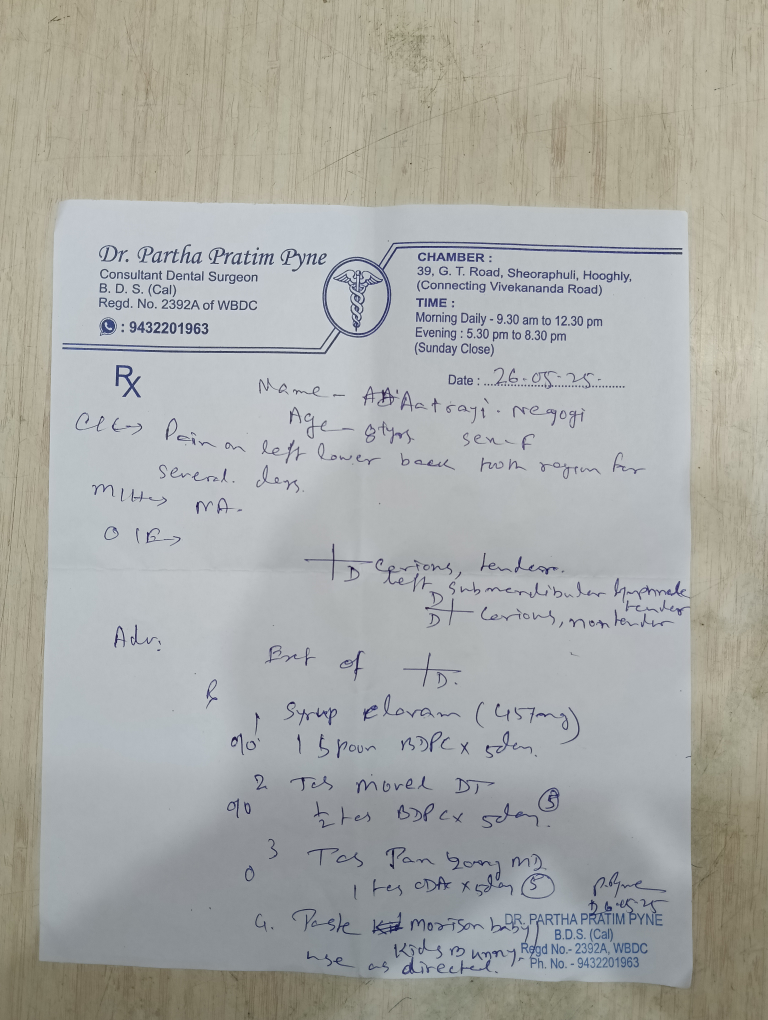 Dr. Partha Pratim Pyne
Consultant Dental Surgeon
B. D. S. (Cal)
Regd. No. 2392A of WBDC
: 9432201963
CHAMBER :
39, G. T. Road, Sheoraphuli, Hooghly,
(Connecting Vivekananda Road)
TIME :
Morning Daily - 9.30 am to 12.30 pm
Evening : 5.30 pm to 8.30 pm
(Sunday Close)
Date : 26-05-25-
Rx
Name - Aatrayi. Neogogi
Age - 8+yrs. sex-F
C/C→ Pain on left lower back tooth region for
several. days.
M/H→ NA.
O/E→
D Carious, tender.
left submandibular lymphnode
tender
D
D Carious, nontender
Adv:
Ext of D.
Rx
1 Syrup Clavam (457mg)
1 Spoon BDPC x 5day.
2 Tab Moxel DT
1/2 tab BDPC x 5day. 5
3 Tab Pan MD
1 tab ODAC x 5day 5
P. Pyne
26-05-25
4. Paste Morison baby
Kids Bunny
use as directed.
DR. PARTHA PRATIM PYNE
B.D.S. (Cal)
Regd No.- 2392A, WBDC
Ph. No. - 9432201963